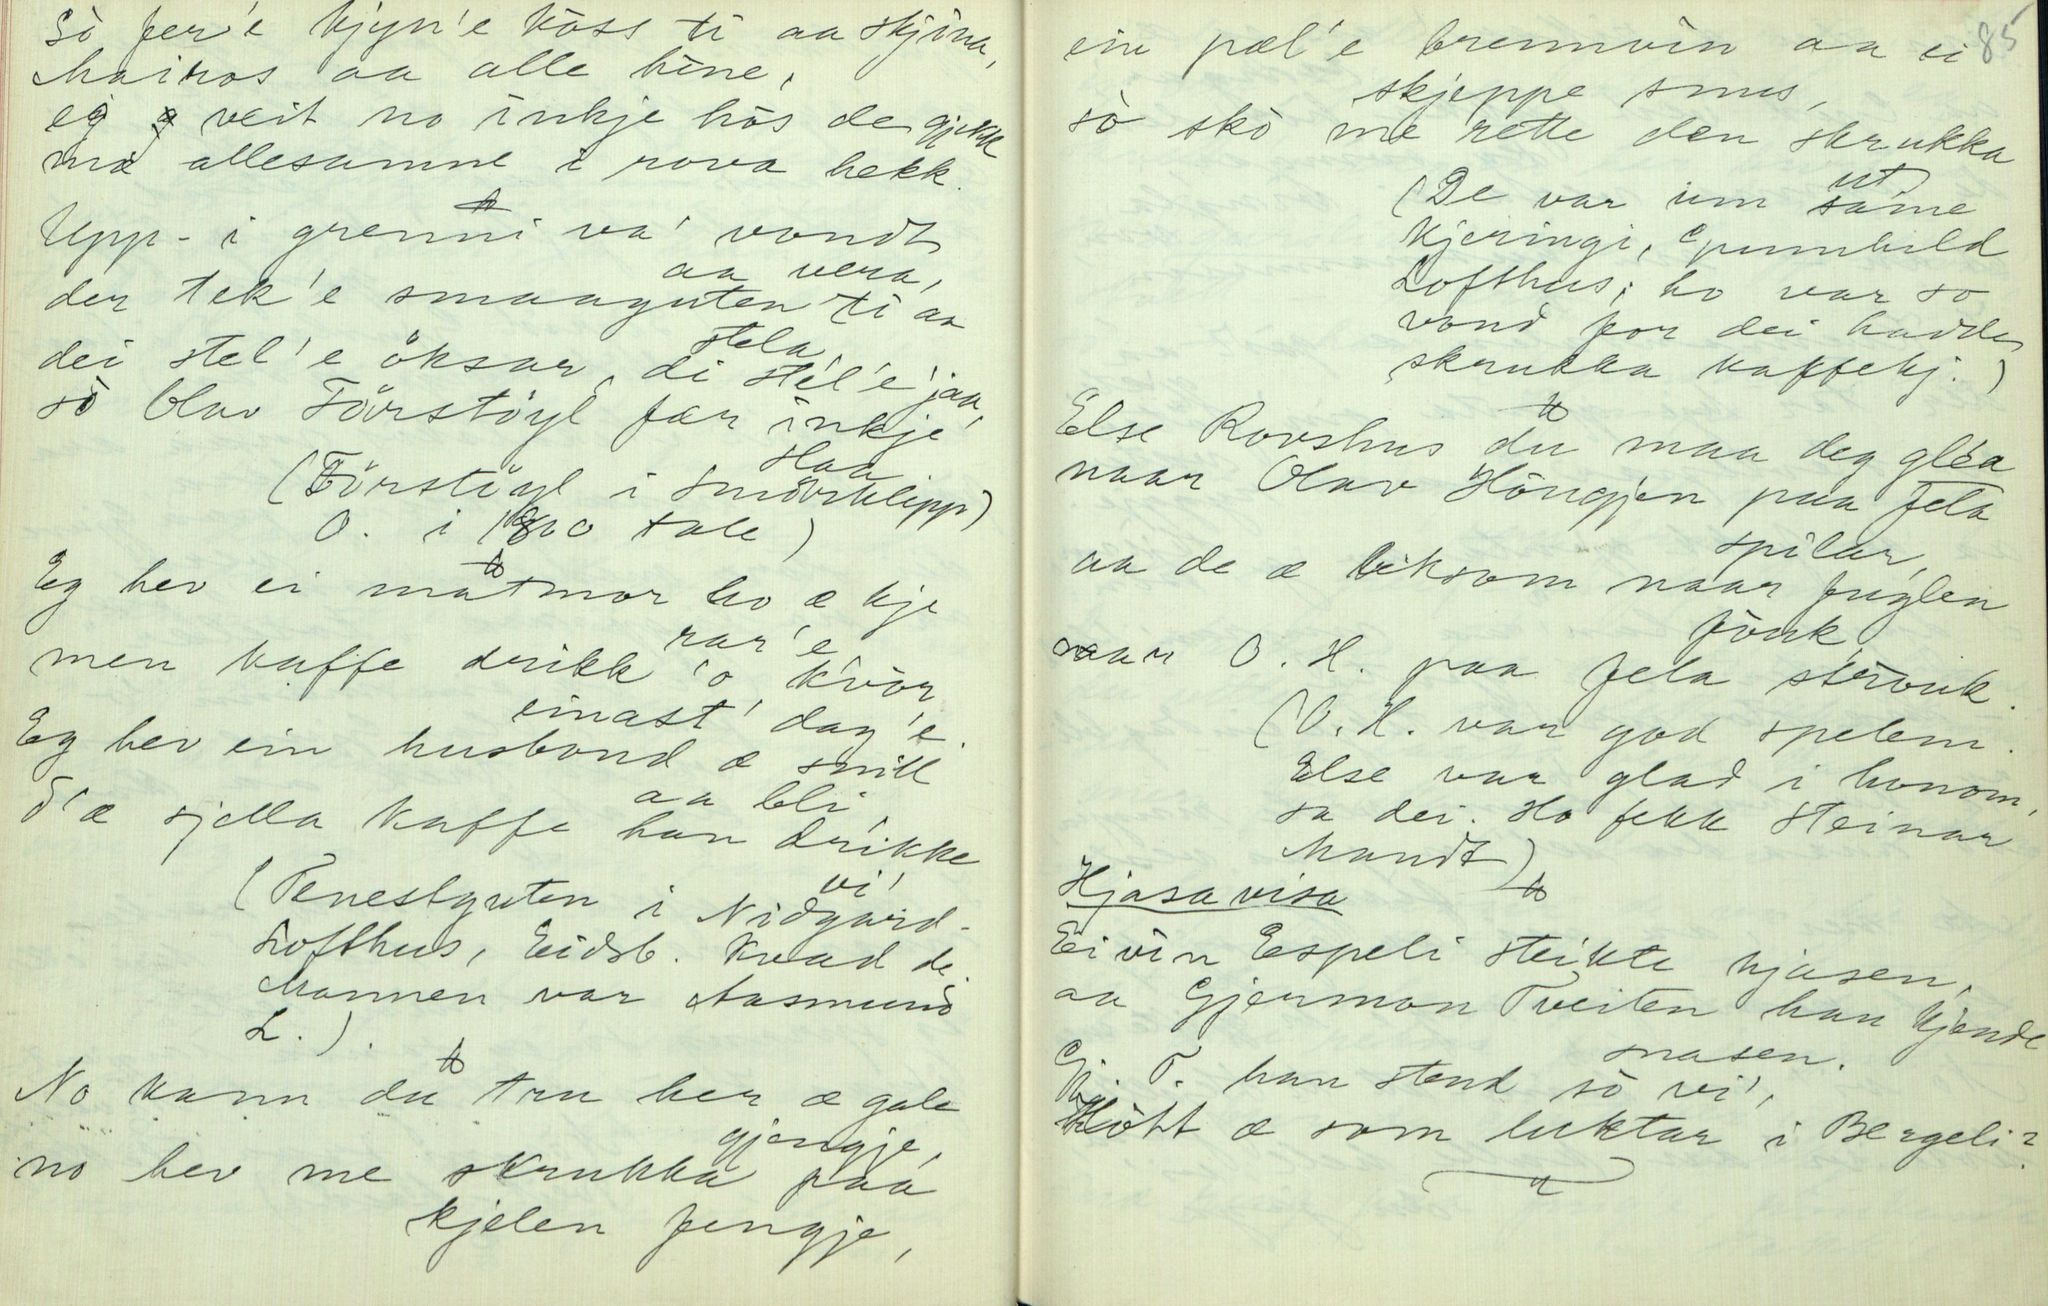 Sò fer'e kjyn'e kòss ti aa skjina,
Mairos aa alle hine,
eg veit no inkje hòs de gjekk
me allesamne i rova hekk.
Upp-i grenni va' vondt
aa vera,
der tek'e smaaguten ti aa
stela
dei stel'e öksar, di stel'e jaa,
sò Olav Förstöyl fær inkje
slaa
(Förstöyl i Smörklipp)
O. i 1800 tale)
Eg hev ei matmor ho æ kje
rar'e
men kaffe drikk 'o kvòr
einast' dag'e.
Eg hev ein husbond æ snill
aa bli
d'æ sjella kaffe han drikke
vi'
(Tenestguten i Nidgard-
Lofthus, Eidsb. kvad de.
Mannen var Aasmund
L.).
No kann du tru her æ gale
gjengje,
no hev me skrukka paa
kjelen fengje,
85
ein pæl'e brennvin aa ei
skjeppe snus,
sò skò me rette den skrukka
ut
(De var um same
kjeringi, Gunnhild
Lofthus; ho var so
vond for dei hadde
skrukka kaffekj.)
Else Rovshus du maa deg gléa
naar Olav Höngjen paa fela
spilar,
aa de æ liksom naar fuglen
fòuk,
naar O. H. paa fela ströuk.
(O. H. var god spelem.
Else var glad i honom,
sa dei. Ho fekk Steinar
Mandt)
Hjasavisa
Eivin Espeli steikte hjasen,
aa Gjermon Tveiten han kjende
snasen.
Gj. T. han stend sò vi',
Hòtt æ som luktar i Bergeli?